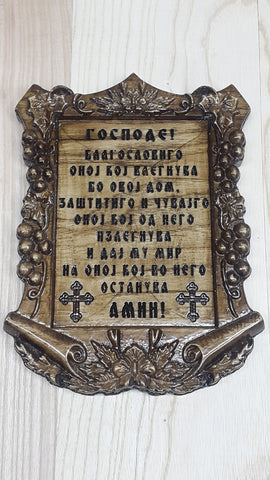 ГОСПОДЕ!
БЛАГОСЛОВИГО
ОНОЈ КОЈ ВЛЕГНУВА
ВО ОВОЈ ДОМ,
ЗАШТИТИГО И ЧУВАЈГО
ОНОЈ КОЈ ОД НЕГО
ИЗЛЕГНУВА
И ДАЈ МУ МИР
НА ОНОЈ КОЈ ВО НЕГО
ОСТАНУВА
АМИН!